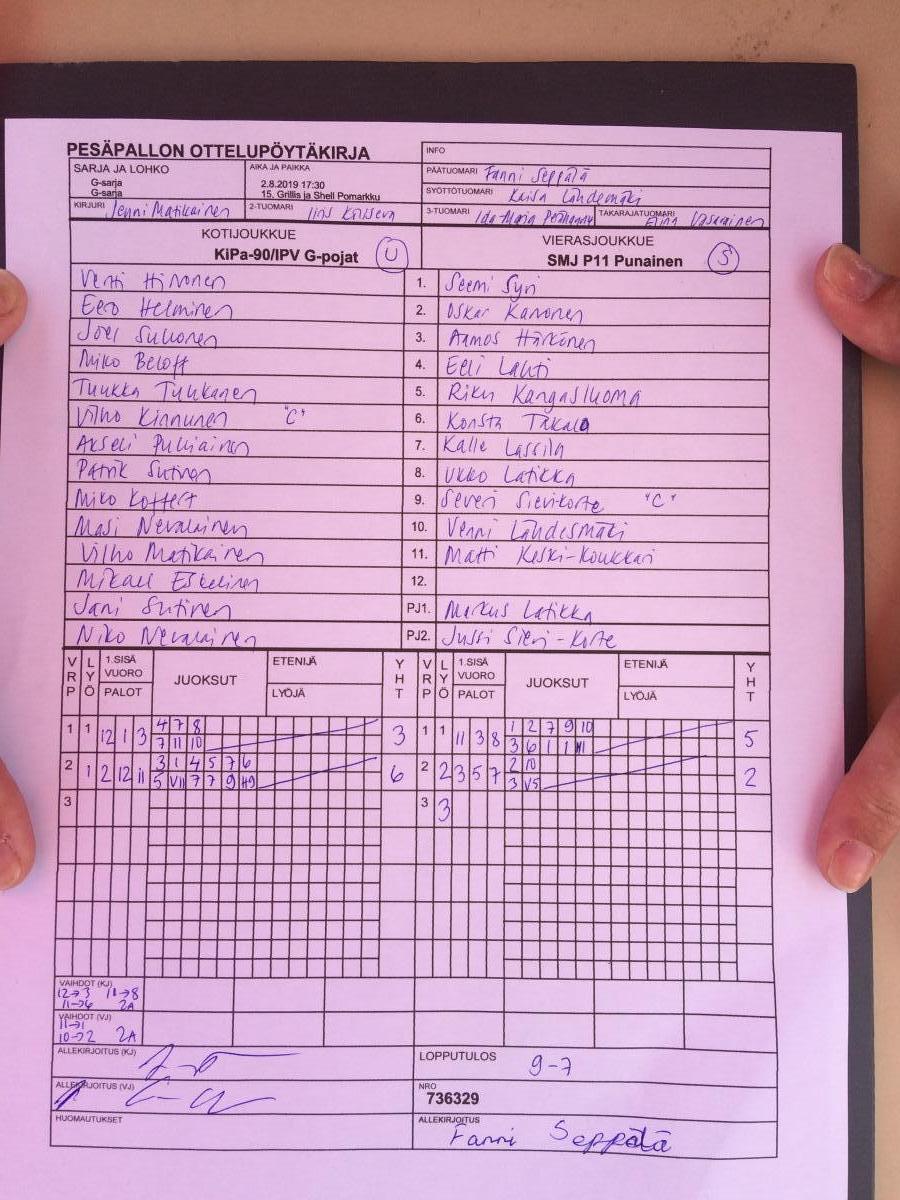 PESÄPALLON OTTELUPÖYTÄKIRJA
INFO
SARJA JA LOHKO
G-sarja
G-sarja
AIKA JA PAIKKA
2.8.2019 17:30
15. Grillis ja Shell Pomarkku
PÄÄTUOMARI Fanni Seppälä
SYÖTTÖTUOMARI Kaisa Lähdemäki
KIRJURI Jenni Matikainen
2-TUOMARI Iiris
3-TUOMARI Ida-Maria
TAKARAJATUOMARI Elina Vasarainen
KOTIJOUKKUE
KiPa-90/IPV G-pojat U
VIERASJOUKKUE
SMJ P11 Punainen S
Vertti Hirvonen 1. Seemi Syri
Eero Helminen 2. Oskar Kanonen
Joel Suhonen 3. Aamos Härkönen
Miko Beloff 4. Eeli Lahti
Tuukka Tuukanen 5. Riku Kangasluoma
Vilho Kinnunen "C" 6. Konsta Takala
Akseli Puhiainen 7. Kalle Lassila
Patrik Sutinen 8. Ukko Latikka
Miko Koffert 9. Severi Sievikorte "C"
Masi Nevalainen 10. Venni Lähdesmäki
Vilho Matikainen 11. Matti Keski-Koukkari
Mikael Eskelinen 12.
Jani Sutinen PJ1. Markus Latikka
Niko Nevalainen PJ2. Jussi Sievi-Korte
VRP LYÖ 1.SISÄ VUORO PALOT JUOKSUT ETENIJÄ LYÖJÄ YHT VRP LYÖ 1.SISÄ VUORO PALOT JUOKSUT ETENIJÄ LYÖJÄ YHT
1 1 12 1 3 4 7 8 3 1 1 11 3 8 1 2 7 9 10 5
7 11 10 3 6 1 1
2 1 2 12 11 3 1 4 5 7 6 6 2 2 3 5 7 2 10 2
5 V11 7 7 9 H9 3 V5
3 3 3
VAIHDOT (KJ)
12→3 11→8
11→6 2A
VAIHDOT (VJ)
11→1
10→2 2A
ALLEKIRJOITUS (KJ)
LOPPUTULOS 9-7
ALLEKIRJOITUS (VJ)
NRO
736329
HUOMAUTUKSET
ALLEKIRJOITUS
Fanni Seppälä